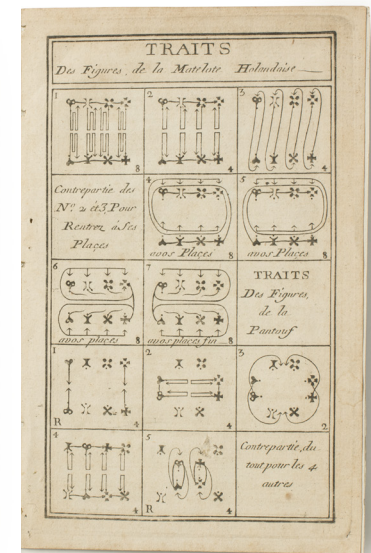 TRAITS
Des Figures, de la Matelote Holandaise
1
2
4
3
4
Contrepartie des
Nº 2 et 3 Pour
Rentrez à Ses
Plaçes
4
avos Plaçes 8
5
avos Plaçes 8
6
avos plaçes 8
7
avos plaçes fin 8
TRAITS
Des Figures,
de la
Pantouf
1
R 4
2
4
3
2
4
4
5
R 4
Contrepartie, du
tout pour les 4
autres